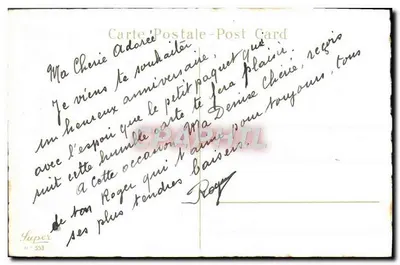 Carte Postale - Post Card
Ma Chérie Adorée
Je viens te souhaiter
un heureux anniversaire,
avec l'espoir que le petit paquet qui
suit cette humble carte te fera plaisir.
A cette occasion, Ma Denise Chérie, reçois
de ton Roger qui t'aime pour toujours, tous
ses plus tendres baisers.
Roger
Super
N° 351